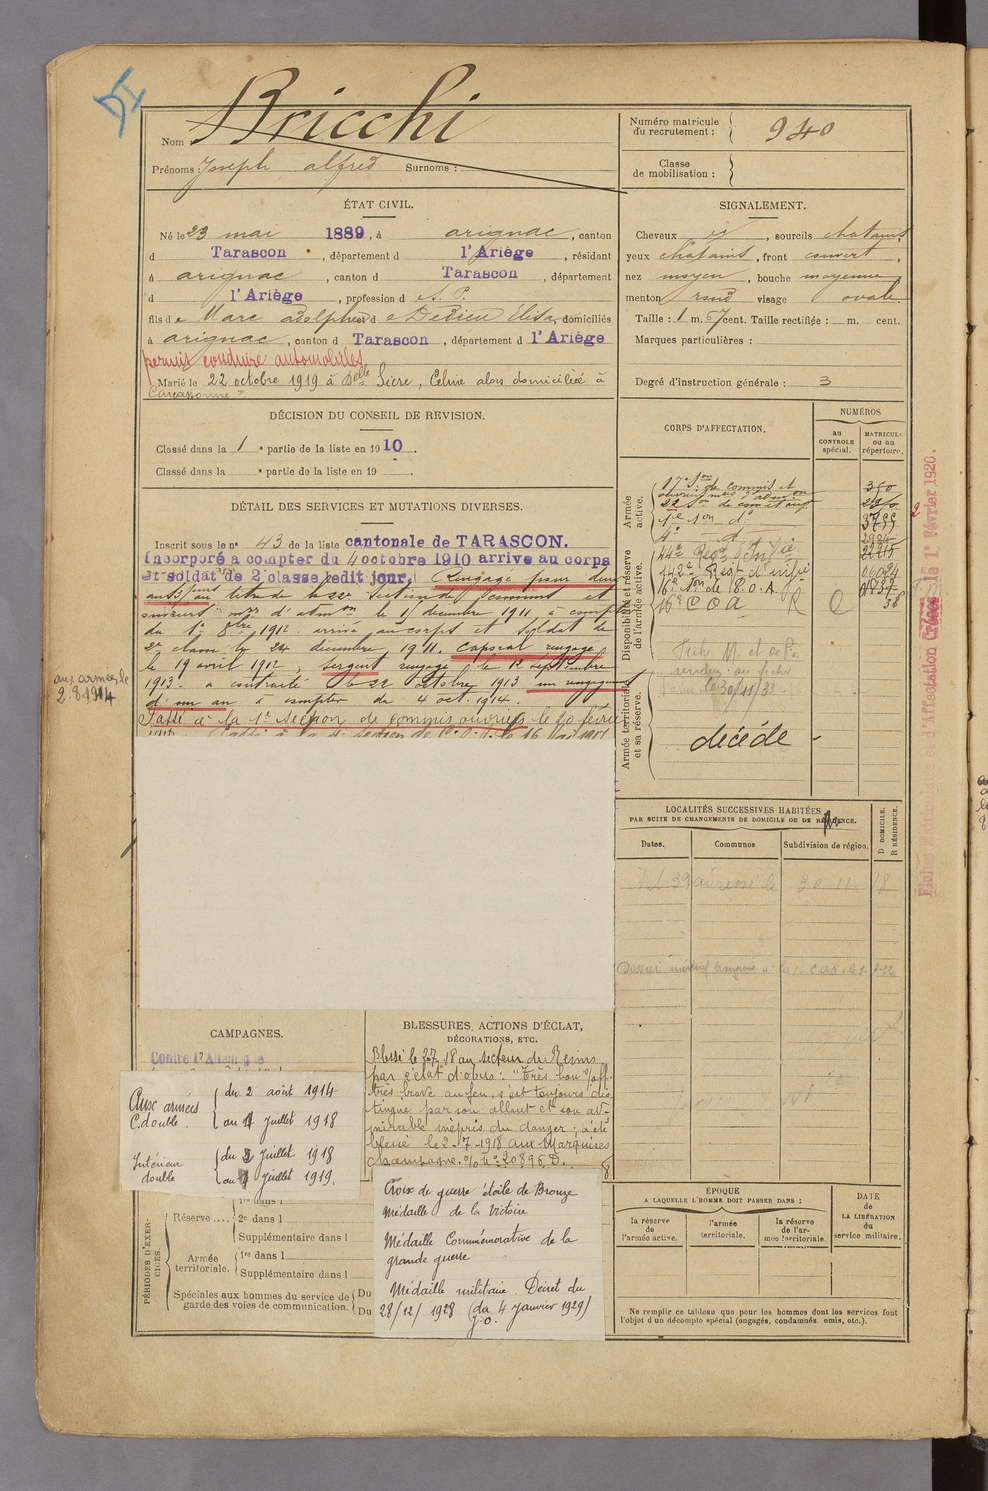 Nom Bricchi
Prénoms : Joseph alfred Surnoms :
Numéro matricule du recrutement : 940
Classe de mobilisation :
ÉTAT CIVIL.
Né le 23 mai 1889, à arignac, canton
d Tarascon, département d l'Ariège, résidant
à arignac, canton d Tarascon, département
d l'Ariège, profession d S. P.
fils de Marc adolphe et de Dedieu Élisa, domiciliés
à arignac, canton d Tarascon, département d l'Ariège
permis conduire automobiles
Marié le 22 octobre 1919 à Delle Sicre, Celine alors domiciliée à
Carcassonne
SIGNALEMENT.
Cheveux, sourcils chatains
yeux chatains, front couvert,
nez moyen, bouche moyenne
menton rond visage ovale.
Taille : 1 m. 57 cent. Taille rectifiée : m. cent.
Marques particulières :
Degré d'instruction générale : 3
DÉCISION DU CONSEIL DE REVISION.
Classé dans la 1e partie de la liste en 1910.
Classé dans la e partie de la liste en 19 .
DÉTAIL DES SERVICES ET MUTATIONS DIVERSES.
Inscrit sous le n° 43 de la liste cantonale de TARASCON.
Incorporé à compter du 4 octobre 1910 arrive au corps
et soldat de 2e classe ledit jour. Rengagé pour deux
ans au titre de la 22e Section de commis et
ouvriers mres d'atmon le 1r decembre 1911 à compter
du 1r 8bre 1912 arrivé au corps et soldat de
2e classe le 24 decembre 1911. Caporal rengagé
le 19 avril 1912, sergent rengagé le 12 septembre
1913. a contracté le 22 octobre 1913 un rengagement
d'un an à compter du 4 oct. 1914.
Passé à la 1e Section de commis ouvriers le 20 février
aux armées le
2.8.1914
CORPS D'AFFECTATION.
NUMÉROS
au CONTROLE spécial.
MATRICULE ou au répertoire.
Armée active.
17e Son de commis et
22e Son de com et ouv.
1re Son d°
4e d°
Disponibilité et réserve de l'armée active.
44e Regt d'Infie
142e Regt d'infie
16e Son de C.O.A.
16e COA R O 38
Armée territoriale et sa réserve.
décédé
Fiche Matriculaire et d'Affectation Créées le 1r Février 1920.
LOCALITÉS SUCCESSIVES HABITÉES
PAR SUITE DE CHANGEMENTS DE DOMICILE OU DE RÉSIDENCE.
Dates. Communes Subdivision de région. D DOMICILE. R RÉSIDENCE.
CAMPAGNES.
Contre l'Allemagne
Aux armées
C. double.
du 2 août 1914
au 1 juillet 1918
Intérieur
double
du 2 juillet 1918
au 4 juillet 1919.
BLESSURES, ACTIONS D'ÉCLAT,
DÉCORATIONS, ETC.
Blessé le 2.7.18 au secteur de Reims
par éclat d'obus : "Très bon s/off.
très brave au feu, s'est toujours dis-
tingué par son allant et son ad-
mirable mépris du danger ; a été
blessé le 2-7-1918 aux Marquises
Champagne. o/ n° 20896 D.
Croix de guerre étoile de Bronze
Médaille de la Victoire
Médaille Commémorative de la
grande guerre
Médaille militaire. Décret du
28/12/1928 (du 4 Janvier 1929)
J.O.
PÉRIODES D'EXERCICES.
Réserve....
1re dans l
2e dans l
Supplémentaire dans l
Armée territoriale.
1re dans l
Supplémentaire dans l
Spéciales aux hommes du service de garde des voies de communication.
Du
Du
ÉPOQUE
A LAQUELLE L'HOMME DOIT PASSER DANS :
la réserve de l'armée active.
l'armée territoriale.
la réserve de l'armée territoriale.
DATE de LA LIBÉRATION du service militaire.
Ne remplir ce tableau que pour les hommes dont les services font
l'objet d'un décompte spécial (engagés, condamnés, omis, etc.).